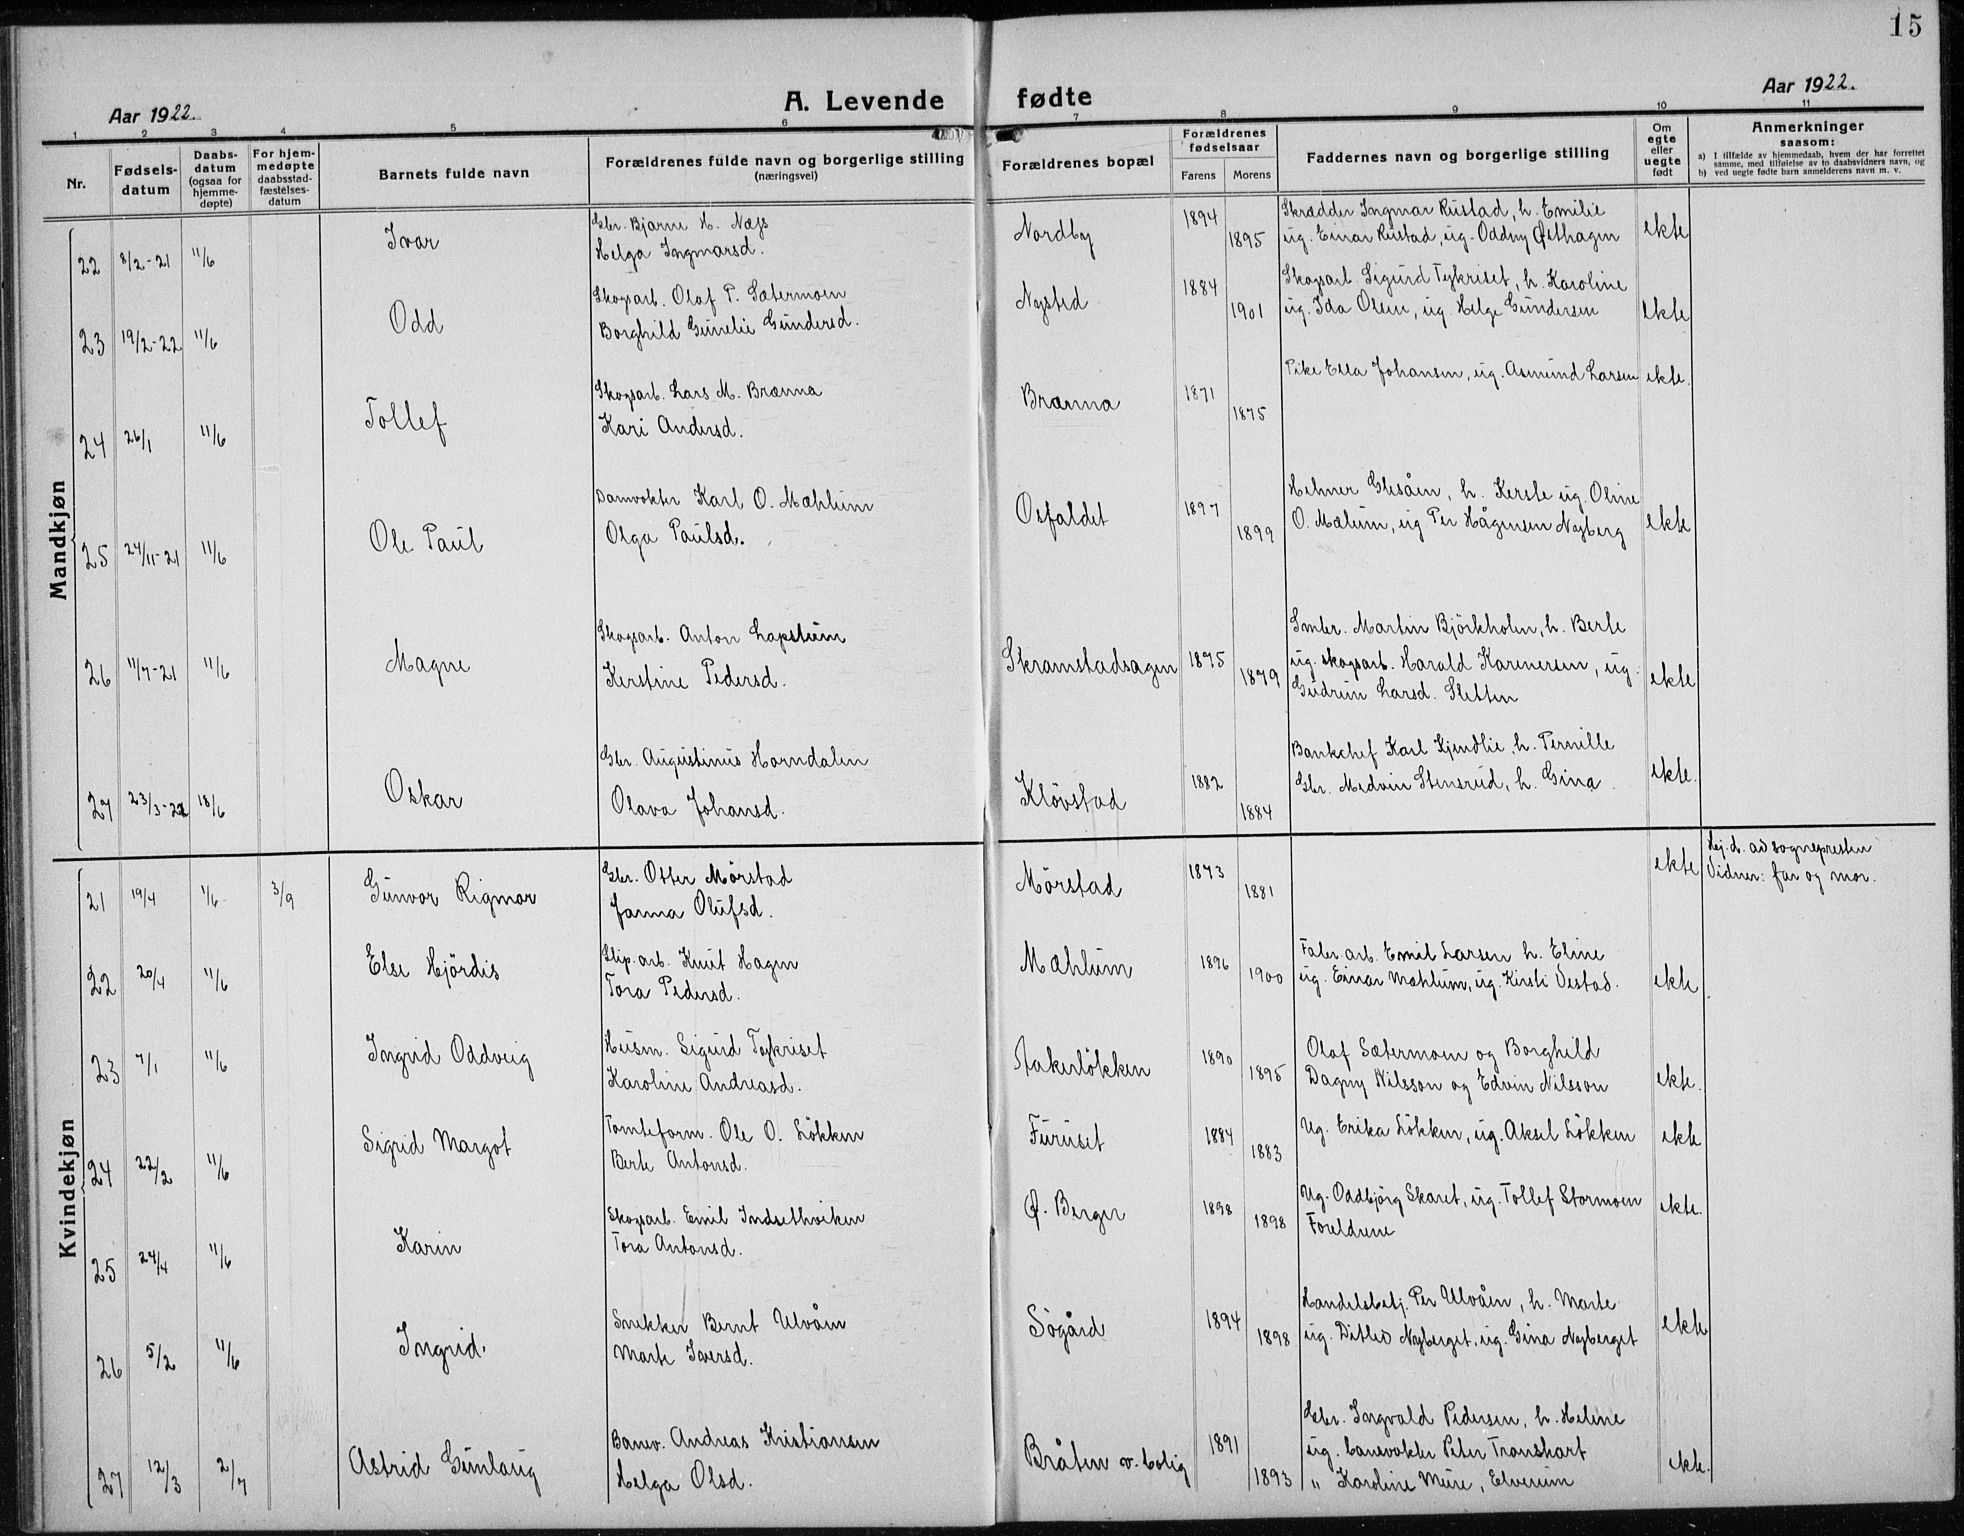 15
Aar 1922.
A. Levende fødte
Aar 1922.
1 2 3 4 5 6 7 8 9 10 11
Nr.
Fødsels-
datum
Daabs-
datum
(ogsaa for
hjemme-
døpte)
For hjem-
medøpte
daabsstad-
fæstelses-
datum
Barnets fulde navn
Forældrenes fulde navn og borgerlige stilling
(næringsvei)
Forældrenes bopæl
Forældrenes
fødselsaar
Farens Morens
Faddernes navn og borgerlige stilling
Om
egte
eller
uegte
født
Anmerkninger
saasom:
a) I tilfælde av hjemmedaab, hvem der har forrettet
samme, med tilføielse av to daabsvidners navn, og
b) ved uegte fødte barn anmelderens navn m. v.
Mandkjøn
22 8/2-21 11/6 Ivar
Gbr. Bjarne H. Næss
Helga Ingmarsd.
Nordby 1894 1895
Skrædder Ingmar Rustad, h. Emilie
ug. Einar Rustad, ug. Oddny Østhagen
ekte
23 19/2-22 11/6 Odd
Skogsarb. Olaf P. Sætermoen
Borghild Gunelie Gundersd.
Nysted 1884 1901
Skogsarb. Sigurd Tykriset, h. Karoline
ug. Ida Olsen, ug. Helge Gundersen
ekte
24 26/1 11/6 Tollef
Skogsarb. Lars M. Brænna
Kari Andersd.
Brænna 1871 1875
Pike Ella Johansen, ug. Asmund Larsen
ekte.
25 24/11-21 11/6 Ole Paul
Damvokter Karl O. Mæhlum
Olga Paulsd.
Osfaldet 1897 1899
Helmer Glesåen, h. Kerste ug. Oline
O. Mælum, ug Per Hågensen Nyberg
ekte
26 11/7-21 11/6 Magne
Skogsarb. Anton Lapstuen
Kerstine Pedersd.
Skramstadsagen 1875 1879
Smbr. Martin Björkholen, h. Berte
ug. skogsarb. Harald Karenersen, ug.
Gudrun Larsd. Sletten
ekte
27 23/3-22 18/6 Oskar
Gbr. Augustinus Horndalen
Olava Johansd.
Klövstad 1882 1884
Bankchef Karl Kjendlie, h. Pernille
Gbr. Medvin Stensrud, h. Gina
ekte.
Kvindekjøn
21 19/4 1/6 3/9 Gunvor Rigmor
Gbr. Otter Mörstad
Janna Olufsd.
Mörstad 1873 1881
ekte
Hj. d. av sognepresten
Vidner: far og mor.
22 20/4 11/6 Else Hjördis
Slip. arb. Knut Hagen
Tora Pedersd.
Mæhlum 1896 1900
Faler. arb. Emil Larsen h. Eline
ug. Einar Mæhlum, ug. Kirsti Vestad.
ekte
23 7/1 11/6 Ingrid Oddveig
Husm. Sigurd Tykriset
Karoline Andreasd.
Stakerlökken 1890 1895
Olaf Sætermoen og Borghild
Dagny Nilsson og Edvin Nilsson
ekte.
24 22/2 11/6 Sigrid Margot
Tömteform. Ole O. Lökken
Berte Antonsd.
Furuset 1884 1883
Ug. Erika Lökken, ug. Aksel Lökken
ekte
25 24/4 11/6 Karin
Skogsarb. Emil Indsethviken
Tora Antonsd.
Ø. Berger 1898 1898
Ug. Oddbjörg Skaret, ug. Tollef Stormoen
Foreldrene
ekte.
26 5/2 11/6 Ingrid.
Snekker Bernt Ulvåen
Marte Iversd.
Sögård 1894 1898
Handelsbetj. Per Ulvåen, h. Marte
ug. Ditlev Nyberget, ug. Gina Nyberget
ekte
27 12/3 2/7 Astrid Gunlaug
Banev. Andreas Kristiansen
Helga Olsd.
Bråten v. bolig 1891 1893
Gbr. Ingvald Pedersen, h. Helene
ug. banevokter Peter Transhart
" Karoline Mure, Elverum
ekte.